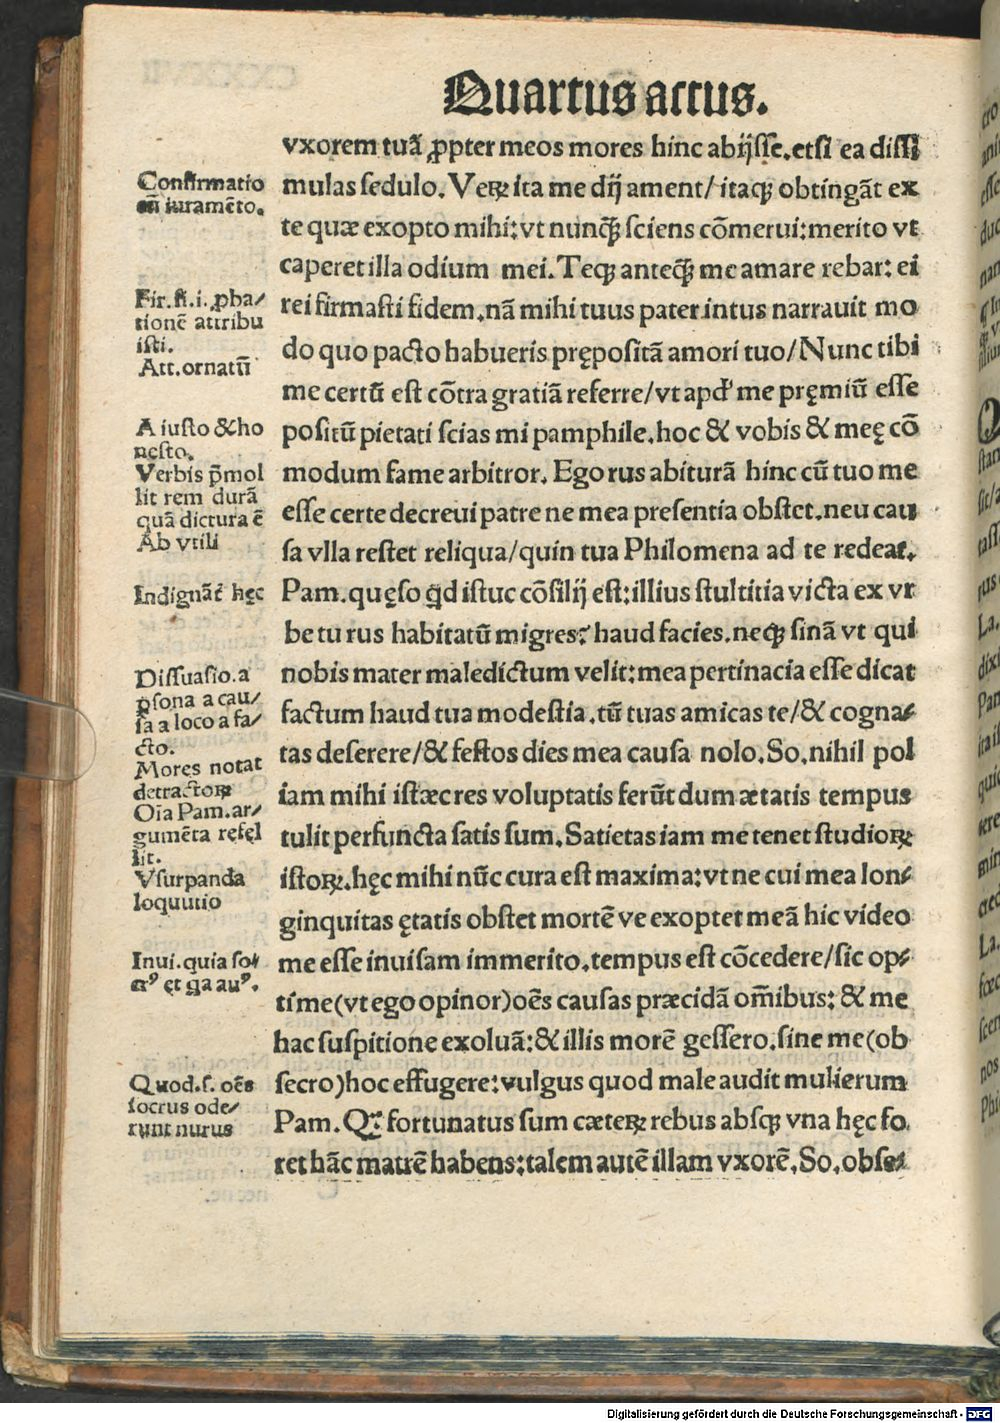 Quartus actus.
vxorem tuã ꝓpter meos mores hinc abijsse.etsi ea dissi
mulas sedulo. Veꝝ ita me dij ament/ itaqꝫ obtingãt ex
te quæ exopto mihi:vt nunqꝫ̃ sciens cõmerui:merito vt
caperet illa odium mei. Teqꝫ anteqꝫ̃ me amare rebar: ei
rei firmasti fidem.nã mihi tuus pater intus narrauit mo
do quo pacto habueris prępositã amori tuo/Nunc tibi
me certũ est cõtra gratiã referre/vt apd' me pręmiũ esse
positũ pietati scias mi pamphile.hoc & vobis & meę cõ
modum fame arbitror. Ego rus abiturã hinc cũ tuo me
esse certe decreui patre ne mea presentia obstet.neu cau
sa vlla restet reliqua/quin tua Philomena ad te redeat.
Pam.quęso qd istuc cõsilij est:illius stultitia victa ex vr
be tu rus habitatũ migres? haud facies.neqꝫ sinã vt qui
nobis mater maledictum velit:mea pertinacia esse dicat
factum haud tua modestia.tũ tuas amicas te/& cogna/
tas deserere/& festos dies mea causa nolo.So.nihil pol
iam mihi istæc res voluptatis ferũt dum ætatis tempus
tulit perfuncta satis sum. Satietas iam me tenet studioꝝ
istoꝝ.hęc mihi nũc cura est maxima:vt ne cui mea lon/
ginquitas ętatis obstet mortẽ ve exoptet meã hic video
me esse inuisam immerito.tempus est cõcedere/sic op/
time(vt ego opinor)oẽs causas præcidã om̃ibus: & me
hac suspitione exoluã:& illis morẽ gessero.sine me(ob
secro)hoc effugere:vulgus quod male audit mulierum
Pam. Qꝫ fortunatus sum cæteꝝ rebus absqꝫ vna hęc fo.
ret hãc matrẽ habens:talem autẽ illam vxorẽ.So.obse/
Confirmatio
cũ iuramẽto.
Fir.st.i.ꝓba/
tionẽ attribu
isti.
Att.ornatũ
A iusto & ho
nesto.
Verbis p̃mol
lit rem durã
quã dictura ẽ
Ab vtili
Indignãt̃ hęc
Dissuasio.a
ꝑsona a cau/
sa a loco a fa/
cto.
Mores notat
detractoꝝ
Oĩa Pam.ar/
gumẽta refęl
lit.
Vsurpanda
loquutio
Inui.quia so/
Quod.s.oẽs
socrus ode/
runt nurus
Digitalisierung gefördert durch die Deutsche Forschungsgemeinschaft - DFG